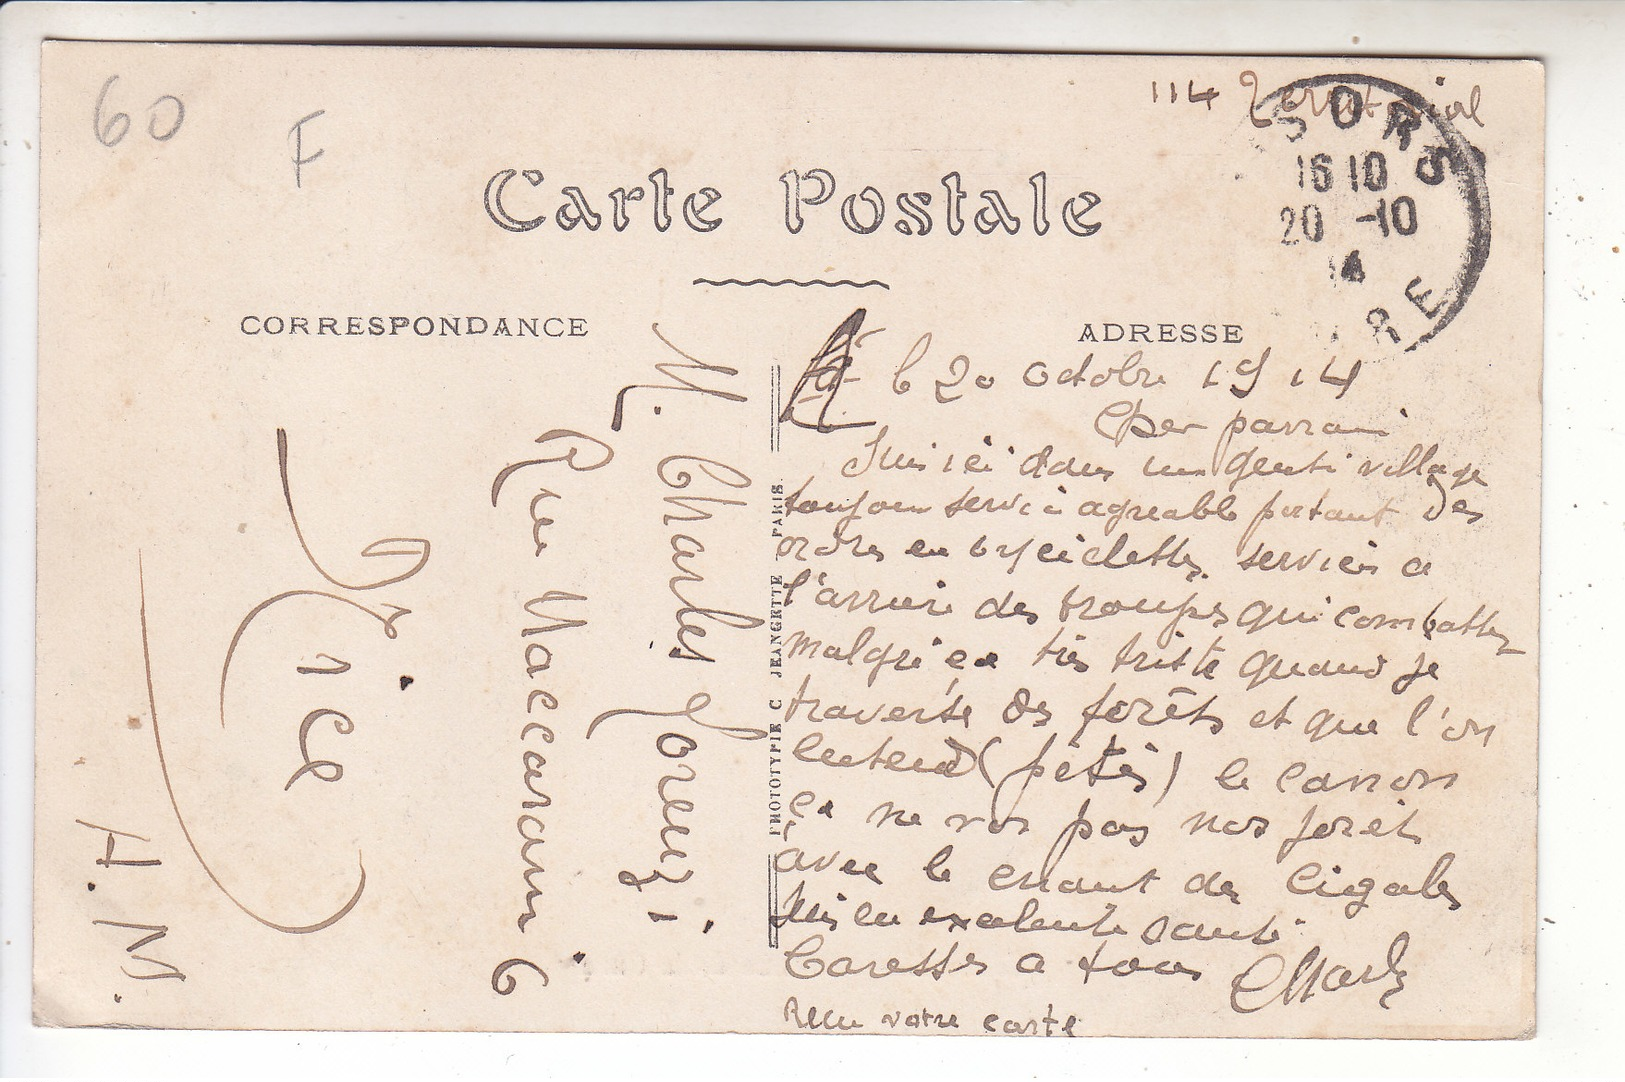 60
F
114 Territorial
SORS
16 10
20 -10
14
RE
Carte Postale
CORRESPONDANCE
ADRESSE
PHOTOTYPIE C JEANGETTE PARIS
M. Charles Lorenzi
Rue Maccarani 6
Nice
A. M.
le 20 octobre 1914
Cher parrain
Suis ici dans un genti village
toujours service agreable portant des
ordres en byciclette, service a
l'arriere des troupes qui combattent
malgré ça très triste quand je
traverse des forêts et que l'on
entend (pêtés) le canon
ça ne vos pas nos forêt
avec le chant des cigales
suis en exelente santé
Caresses a tous Charles
Reçu votre carte